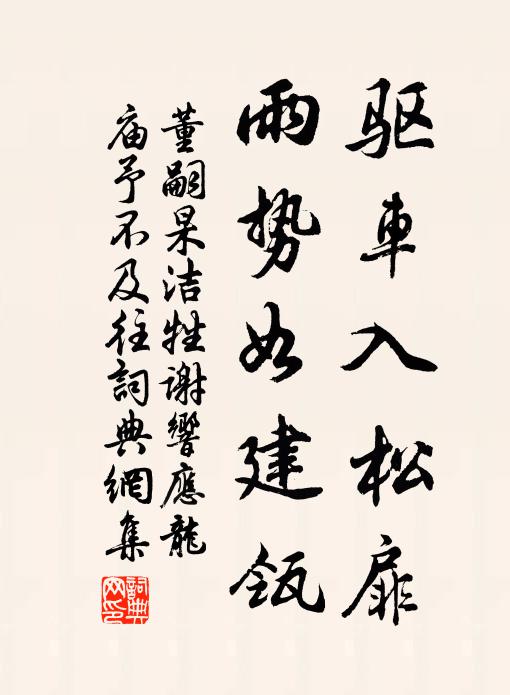 驱車入松扉
雨勢如建瓴
董嗣杲洁牲谢響應龍
庙予不及往詞典網集
詞典网印